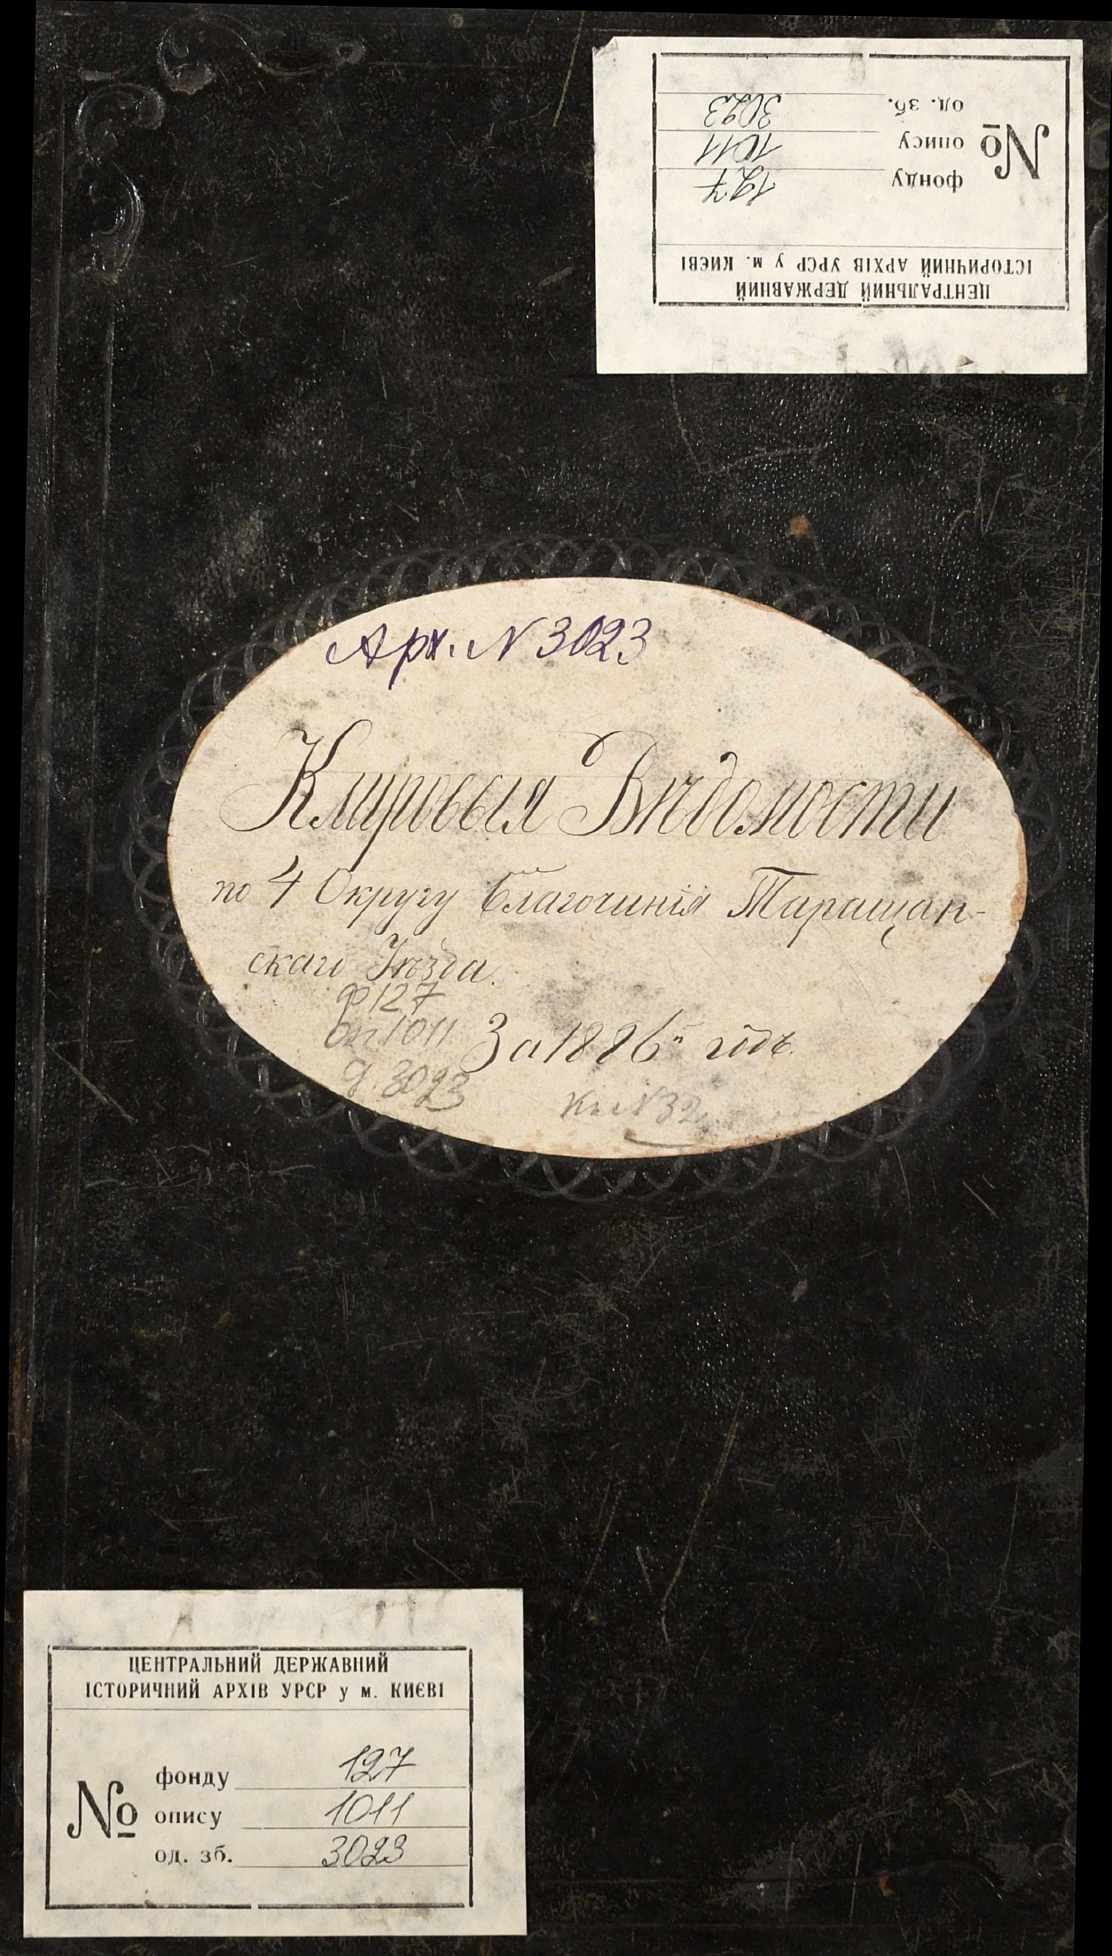 ЦЕНТРАЛЬНИЙ ДЕРЖАВНИЙ
ІСТОРИЧНИЙ АРХІВ УРСР у м. КИЄВІ
№
фонду 127
опису 1011
од. зб. 3023
Арх. N 3023
Клировыя Вѣдомости
по 4 Округу Благочинія Таращан-
скаго Уѣзда.
ф 127
оп 1011
д. 3023
За 1886й годъ.
ЦЕНТРАЛЬНИЙ ДЕРЖАВНИЙ
ІСТОРИЧНИЙ АРХІВ УРСР у м. КИЄВІ
№
фонду 127
опису 1011
од. зб. 3023